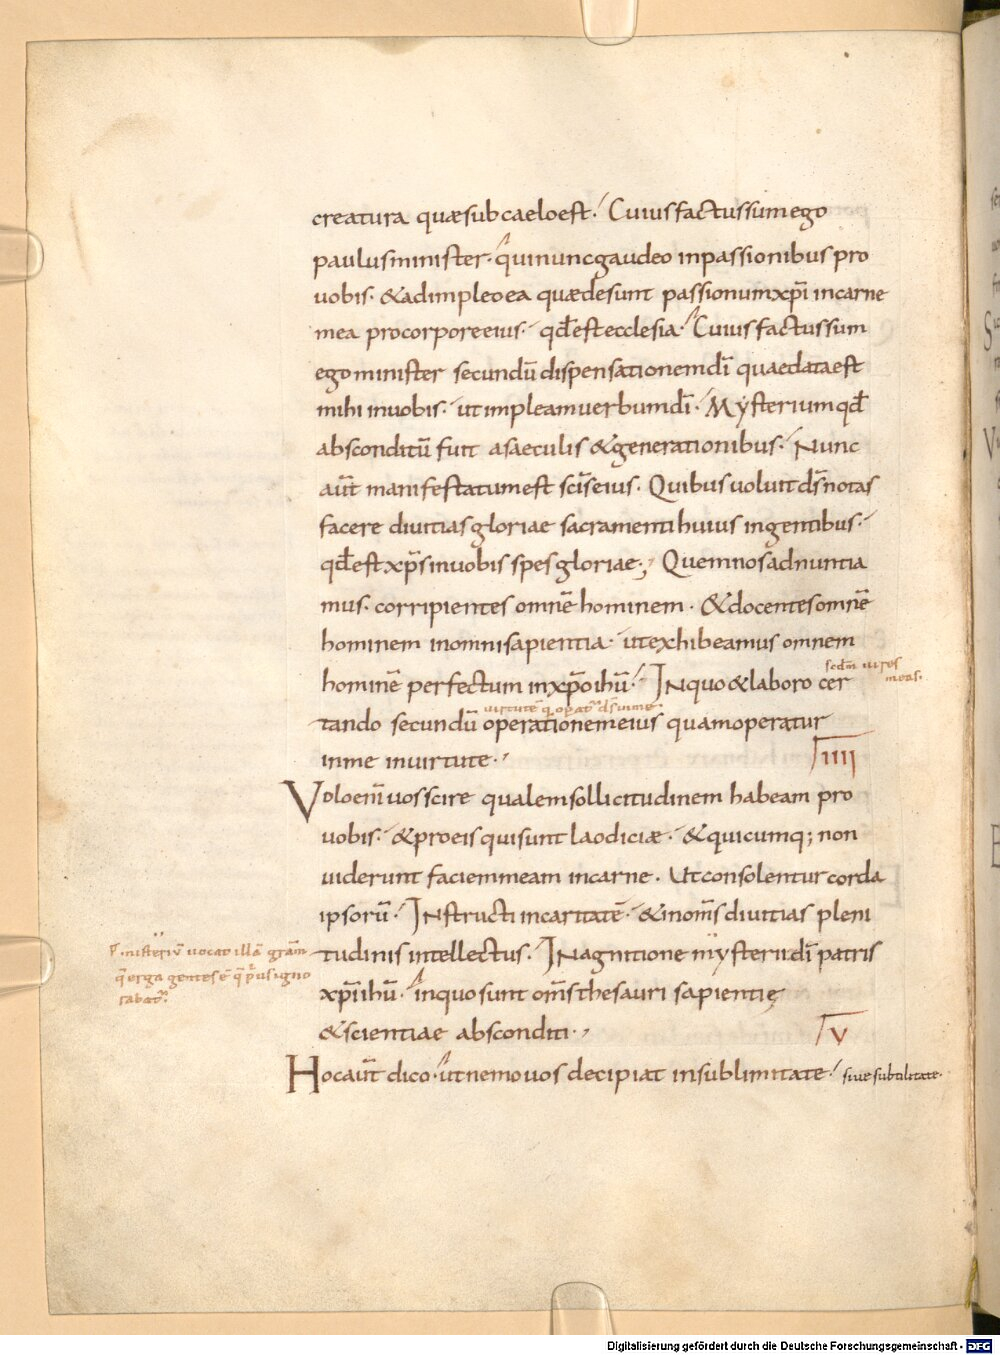 creatura quæ sub caelo est. Cuius factus sum ego
paulus minister. qui nunc gaudeo in passionibus pro
uobis. & adimpleo ea quæ desunt passionum xp̄i in carne
mea pro corpore eius. qd̄ est ecclesia. Cuius factus sum
ego minister secundū dispensationem dī quae data est
mihi in uobis. ut impleam uerbum dī. Mysterium qd̄
absconditū fuit a saeculis & generationibus. Nunc
aūt manifestatum est scīs eius. Quibus uoluit ds̄ notas
facere diuitias gloriae sacramenti huius in gentibus.
qd̄ est xp̄s in uobis spes gloriae; Quem nos adnuntia
mus. corripientes omnē hominem. & docentes omnē
hominem in omni sapientia. ut exhibeamus omnem
hominē perfectum in xp̄o ihū. In quo & laboro cer
secdm̄ uires
meas.
uirtutē q̄ operat̄ ds̄ in me
tando secundū operationem eius quam operatur
in me in uirtute.
IIII
Volo enī uos scire qualem sollicitudinem habeam pro
uobis. & pro eis qui sunt laodiciæ. & quicumq; non
uiderunt faciem meam in carne. Ut consolentur corda
ipsorū. Instructi in caritatē. & in om̄s diuitias pleni
tudinis intellectus. In agnitione mysterii dī patris
misteriū uocat illā
q̄ erga gentes ē
xp̄i ihū. in quo sunt om̄s thesauri sapientię
& scientiae absconditi.
V
Hoc aūt dico. ut nemo uos decipiat in sublimitate. siue subtilitate.
Digitalisierung gefördert durch die Deutsche Forschungsgemeinschaft - DFG